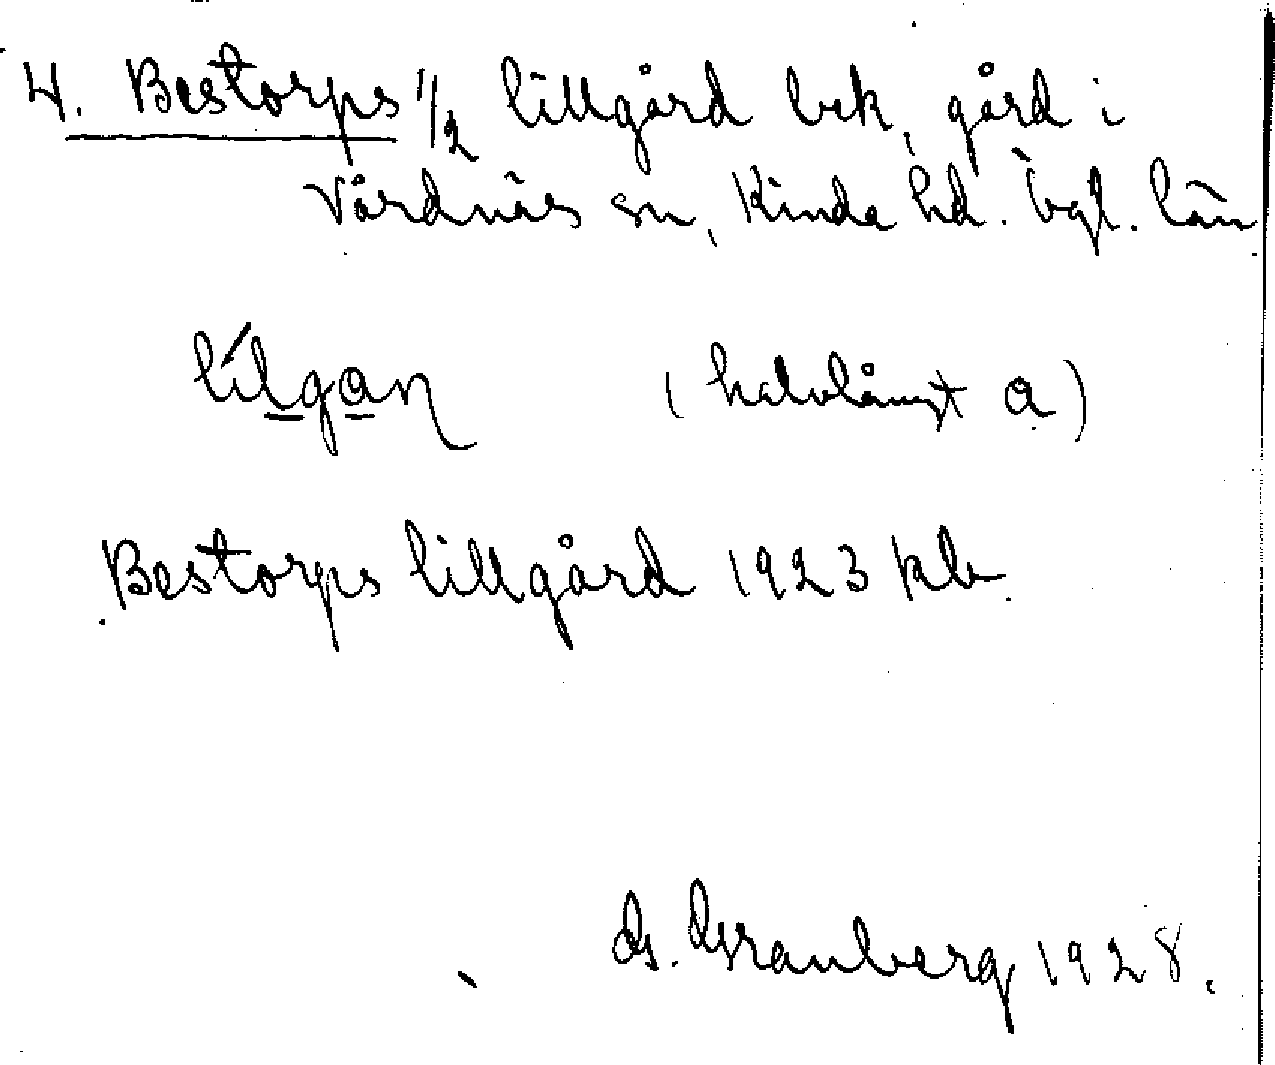 4. Bestorps 1/2 lillgård bek, gård i
Vårdnäs sn, Kinda hd. Ögl. län
lílgaɳ (halvlångt a)
Bestorps lillgård 1923 kb
G. Granberg 1928.